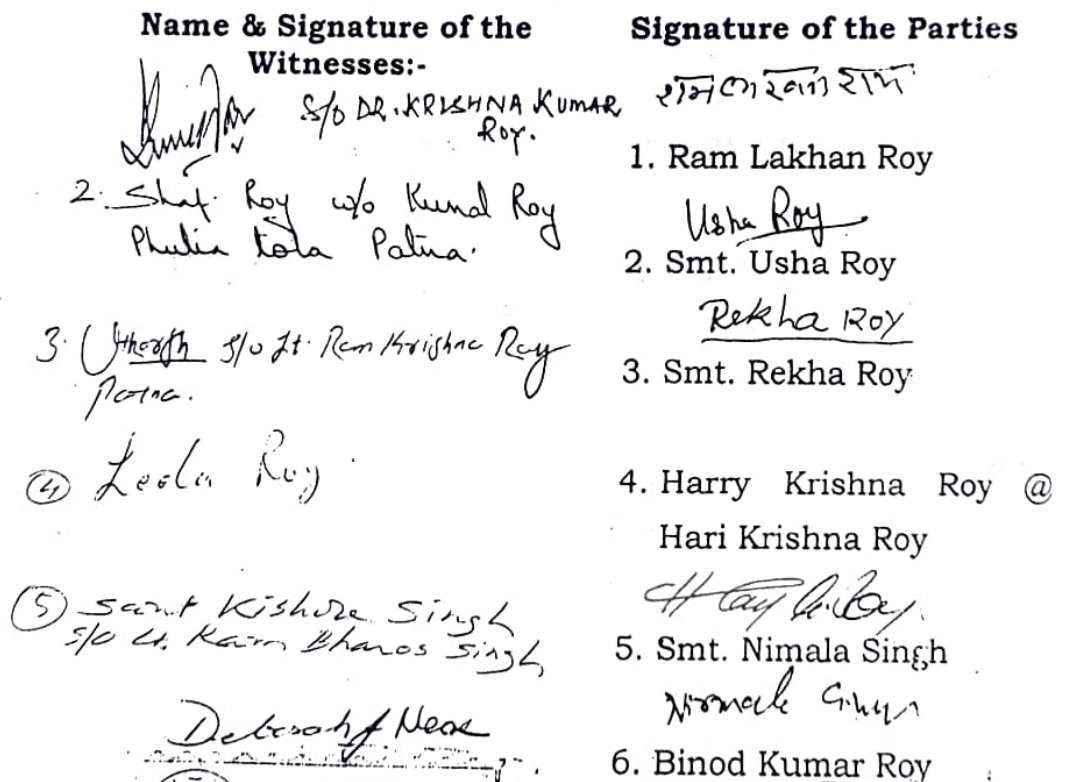 Name & Signature of the
Witnesses:-
S/o DR. KRISHNA KUMAR
Roy.
2. Roy w/o Kunal Roy
tola Patna.
3. S/o Lt. Ram Krishna Roy
Patna.
(4) Leela Roy
(5) Sant Kishore Singh
S/o Lt. Ram Bharos Singh
Signature of the Parties
1. Ram Lakhan Roy
Usha Roy
2. Smt. Usha Roy
Rekha ROY
3. Smt. Rekha Roy
4. Harry Krishna Roy @
Hari Krishna Roy
5. Smt. Nimala Singh
6. Binod Kumar Roy